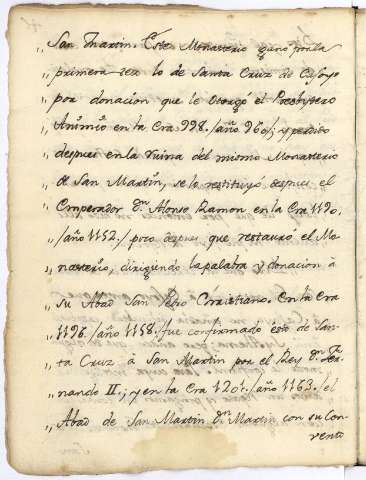 „ San Martin. Este Monasterio ganó por la
„ primera vez lo de Santa Cruz de Casoyo
„ por donacion que le otorgó el Presbytero
„ Animio en la Era 998. /año 960/; y perdido
„ despues en la ruina del mismo Monasterio
„ de San Martin, se lo restituyó despues el
„ Emperador Dn. Alonso Ramon en la Era 1190.
„ /año 1152./ poco despues que restauró el Mo-
„ nasterio, dirigiendo la palabra y donacion à
„ su Abad San Pedro Christiano. En la Era
„ 1196. /año 1158./ fue confirmado esto de San-
„ ta Cruz à San Martin por el Rey Dn. Fer-
„ nando II.; y en la Era 1201. /año 1163./ el
„ Abad de San Martin Dn. Martin con su Con-
vento